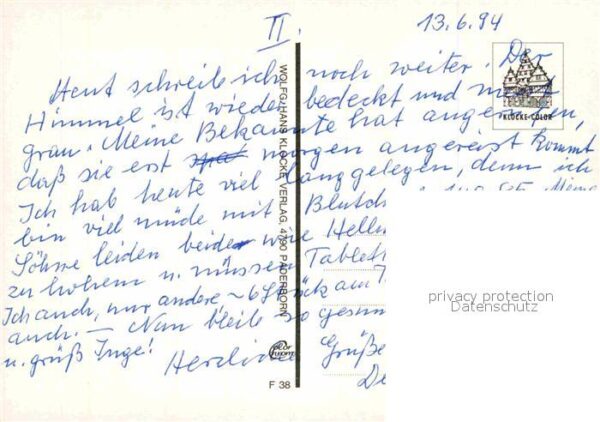 II.
13.6.94
Heut schreib ich noch weiter. Der
Himmel ist wieder bedeckt und
grau. Meine Bekannte hat angerufen,
daß sie erst morgen angereist kommt
Ich hab heute viel langgelegen, denn ich
bin viel müde mit Blutdr
Söhne leiden beide wie Helln
zu hohem u. müssen Tablet
Ich auch, nur andere ~ 6 Stück am T
auch. — Nun bleib so gesun
u. grüß Inge!
Herzliche Grüße
De
KLOCKE-COLOR
WOLFG. HANS KLOCKE VERLAG, 4790 PADERBORN
F 38
privacy protection
Datenschutz